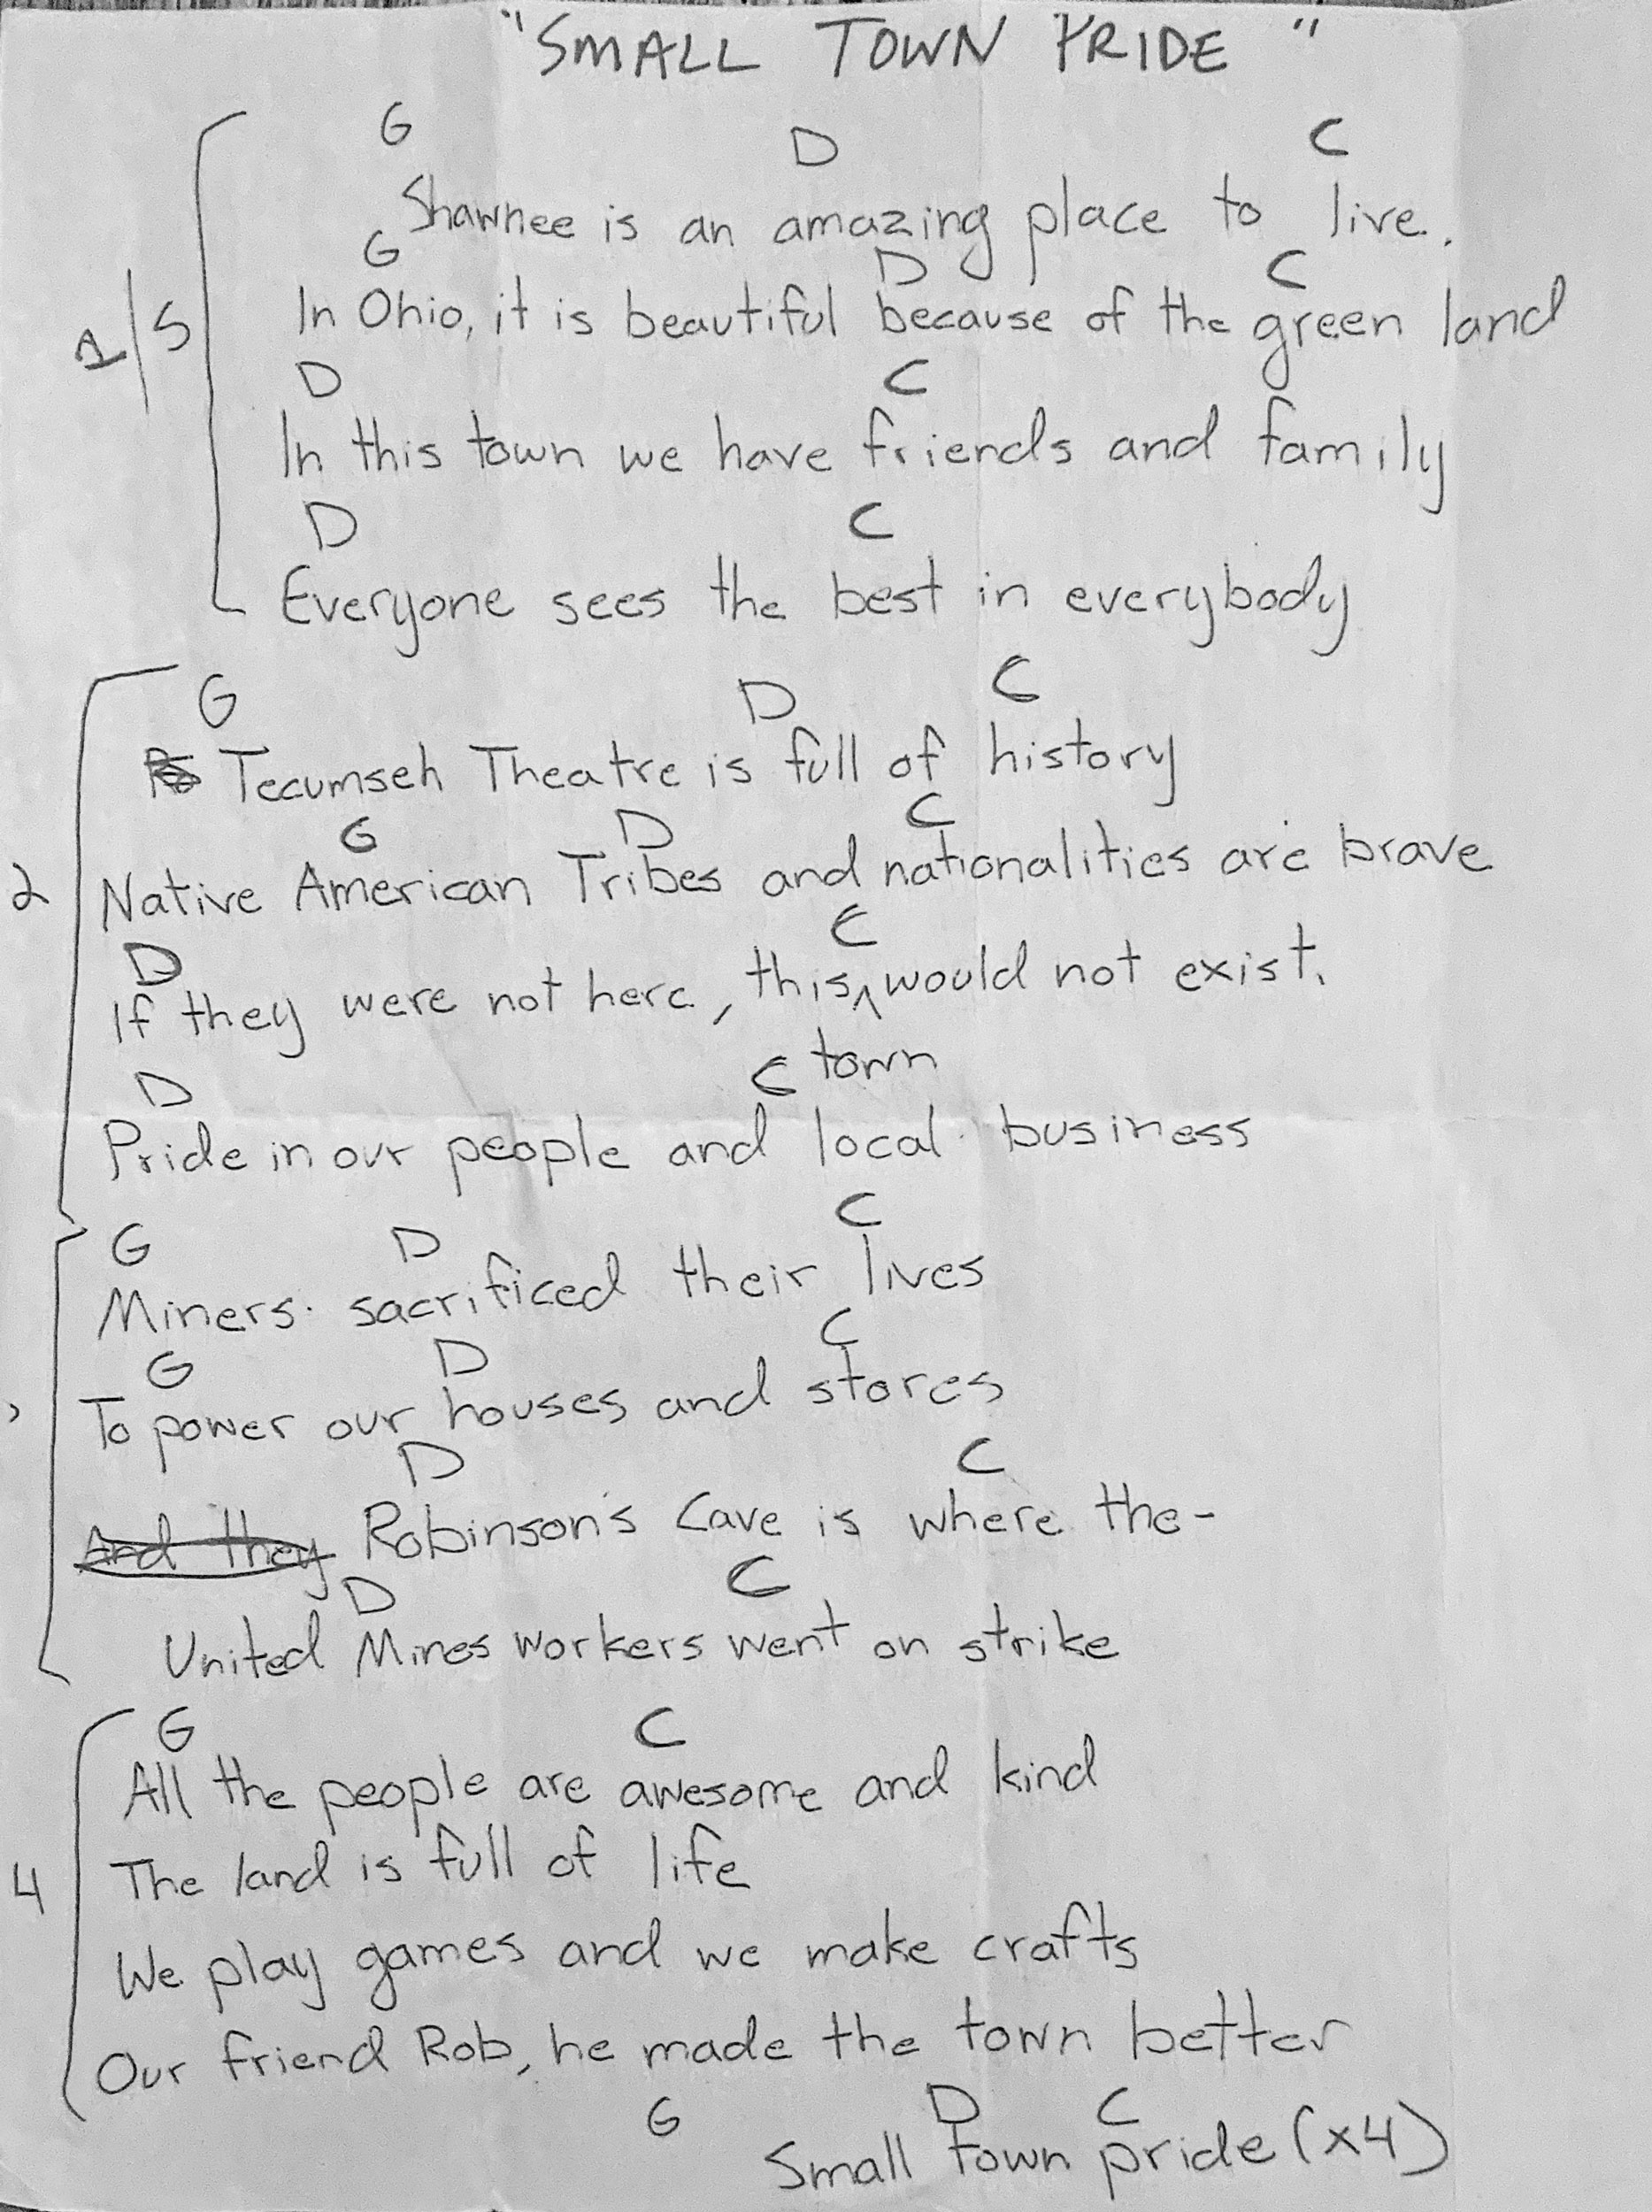 "SMALL TOWN PRIDE"
G D C
Shawnee is an amazing place to live.
G D C
1/5 In Ohio, it is beautiful because of the green land
D C
In this town we have friends and family
D C
Everyone sees the best in everybody
G D C
Tecumseh Theatre is full of history
G D C
2 Native American Tribes and nationalities are brave
D C
If they were not here, this ^ would not exist.
town
D C
Pride in our people and local business
G D C
Miners sacrificed their lives
G D C
To power our houses and stores
D C
And they Robinson's Cave is where the-
D C
United Mines workers went on strike
G C
All the people are awesome and kind
4 The land is full of life
We play games and we make crafts
Our friend Rob, he made the town better
G D C
Small town pride (x4)